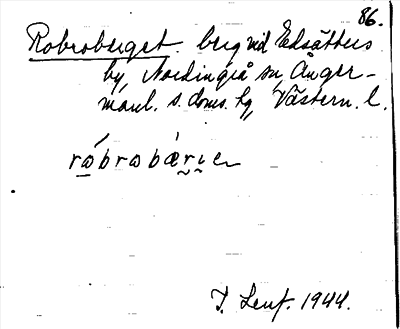 86.
Robroberget. berg vid Edsätters
by, Nordingrå sn, Ånger-
manl. s. doms. hg, Västern. l.
råbrabæ̀rıe
J. Leuf. 1944.